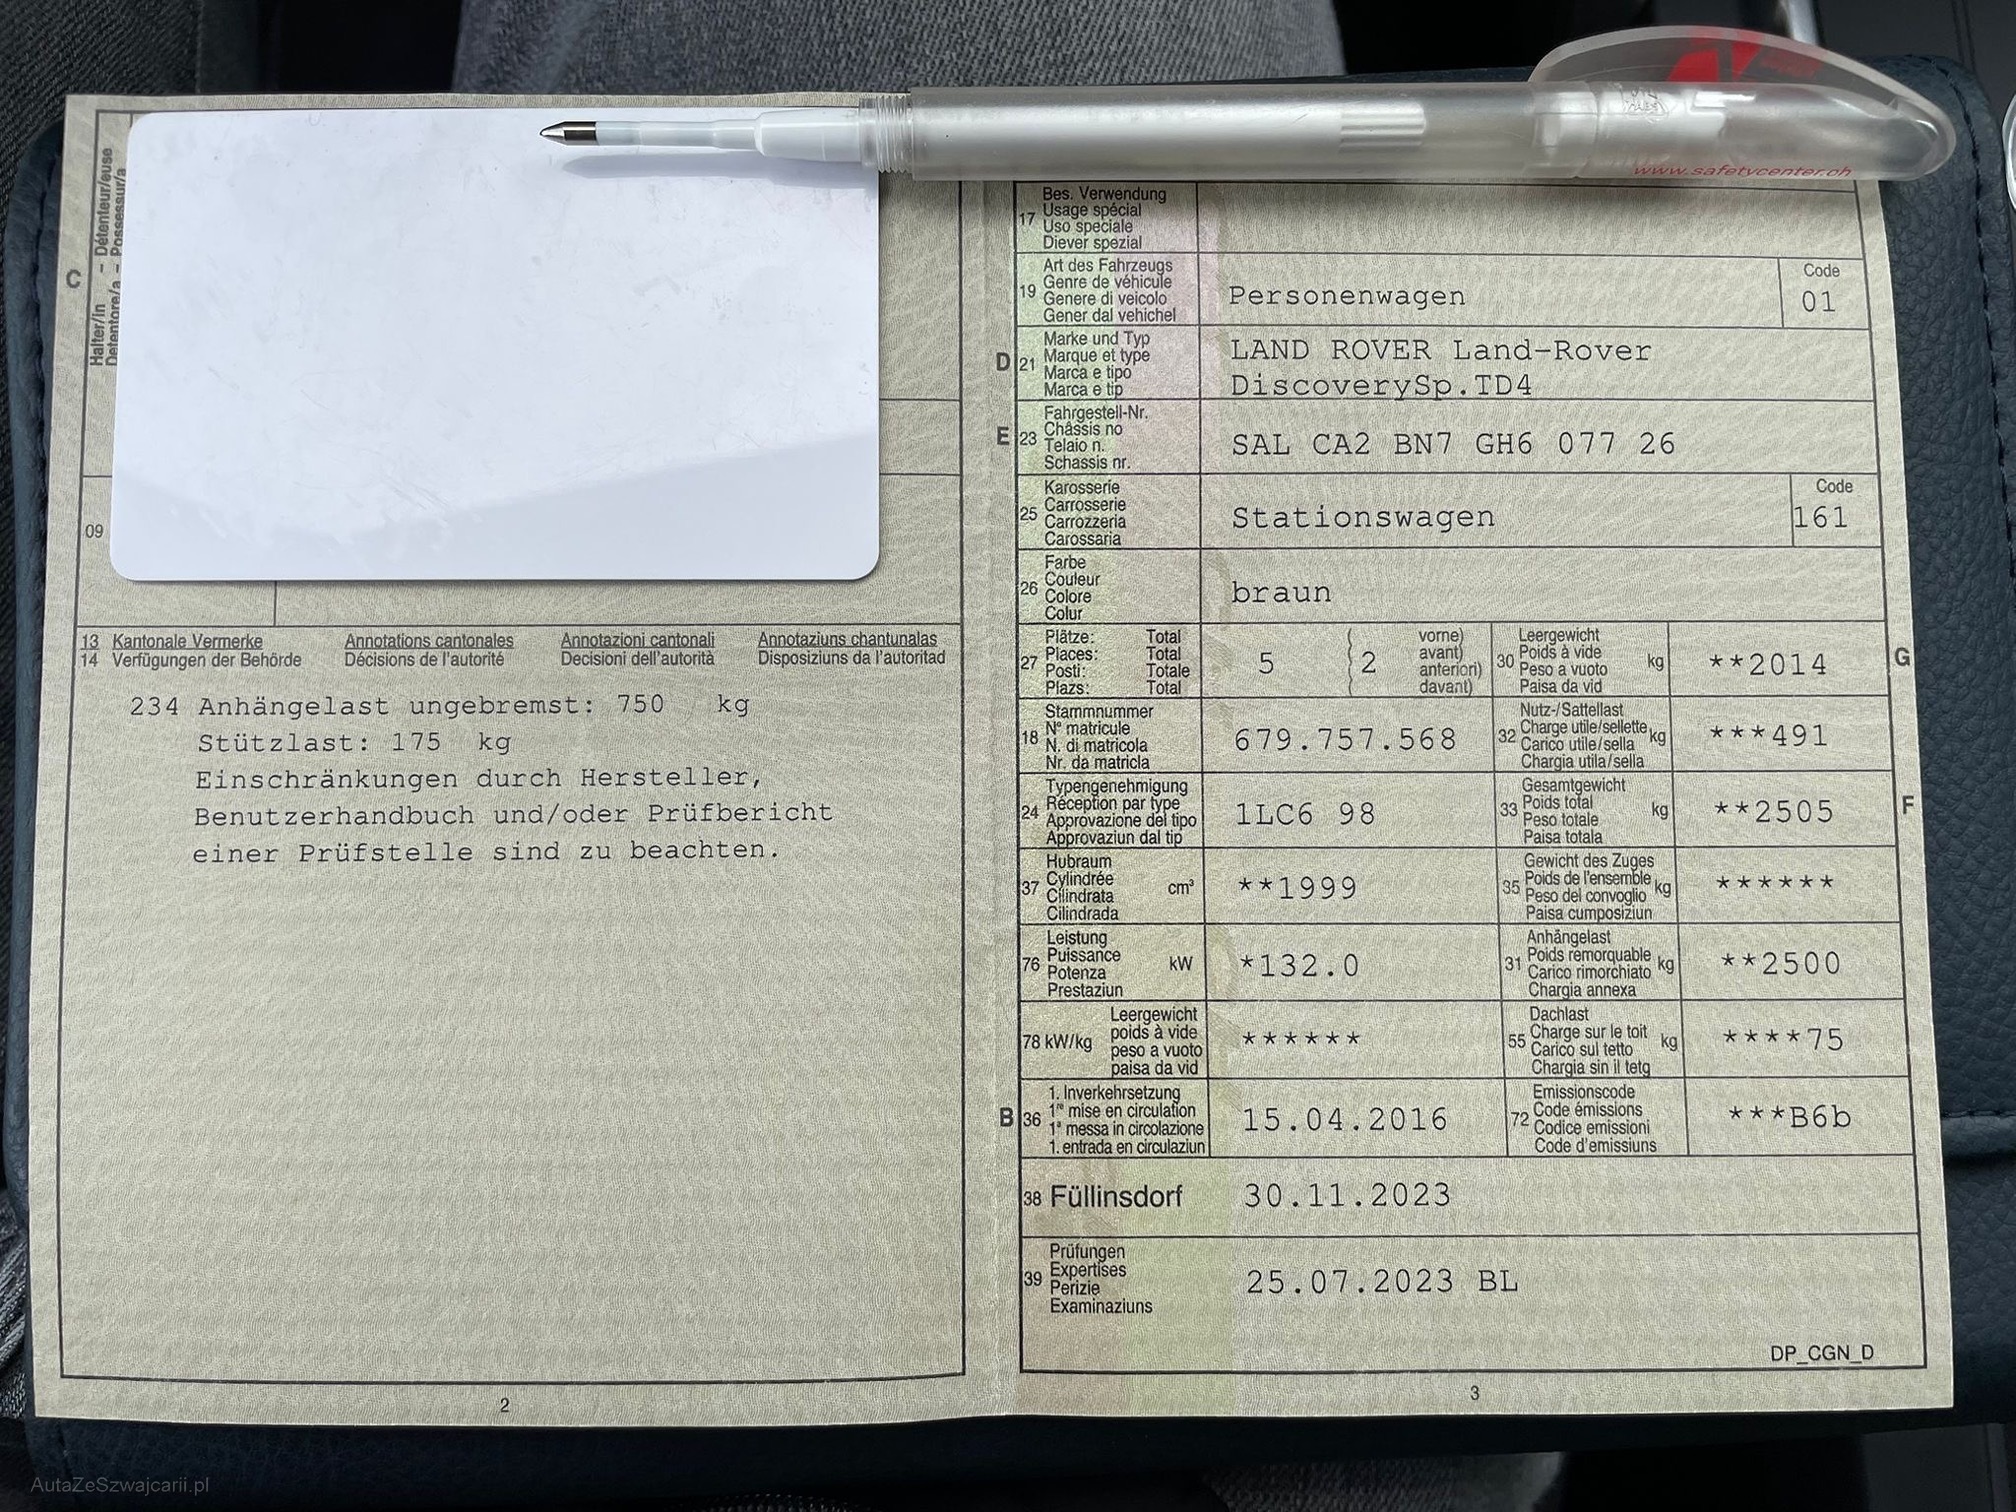 www.safetycenter.ch
C
Halter/in – Détenteur/euse
Detentore/a – Possessur/a
09
13 Kantonale Vermerke Annotations cantonales Annotazioni cantonali Annotaziuns chantunalas
14 Verfügungen der Behörde Décisions de l'autorité Decisioni dell'autorità Disposiziuns da l'autoritad
234 Anhängelast ungebremst: 750 kg
Stützlast: 175 kg
Einschränkungen durch Hersteller,
Benutzerhandbuch und/oder Prüfbericht
einer Prüfstelle sind zu beachten.
2
17
Bes. Verwendung
Usage spécial
Uso speciale
Diever spezial
19
Art des Fahrzeugs
Genre de véhicule
Genere di veicolo
Gener dal vehichel
Personenwagen
Code
01
D
21
Marke und Typ
Marque et type
Marca e tipo
Marca e tip
LAND ROVER Land-Rover
DiscoverySp.TD4
E
23
Fahrgestell-Nr.
Châssis no
Telaio n.
Schassis nr.
SAL CA2 BN7 GH6 077 26
25
Karosserie
Carrosserie
Carrozzeria
Carossaria
Stationswagen
Code
161
26
Farbe
Couleur
Colore
Colur
braun
27
Plätze: Total
Places: Total
Posti: Totale
Plazs: Total
5
2
vorne)
avant)
anteriori)
davant)
30
Leergewicht
Poids à vide
Peso a vuoto
Paisa da vid
kg
**2014
G
18
Stammnummer
N° matricule
N. di matricola
Nr. da matricla
679.757.568
32
Nutz-/Sattellast
Charge utile/sellette
Carico utile/sella
Chargia utila/sella
kg
***491
24
Typengenehmigung
Réception par type
Approvazione del tipo
Approvaziun dal tip
1LC6 98
33
Gesamtgewicht
Poids total
Peso totale
Paisa totala
kg
**2505
F
37
Hubraum
Cylindrée
Cilindrata
Cilindrada
cm³
**1999
35
Gewicht des Zuges
Poids de l'ensemble
Peso del convoglio
Paisa cumposiziun
kg
******
76
Leistung
Puissance
Potenza
Prestaziun
kW
*132.0
31
Anhängelast
Poids remorquable
Carico rimorchiato
Chargia annexa
kg
**2500
78 kW/kg
Leergewicht
poids à vide
peso a vuoto
paisa da vid
******
55
Dachlast
Charge sur le toit
Carico sul tetto
Chargia sin il tetg
kg
****75
B
36
1. Inverkehrsetzung
1re mise en circulation
1a messa in circolazione
1. entrada en circulaziun
15.04.2016
72
Emissionscode
Code émissions
Codice emissioni
Code d'emissiuns
***B6b
38 Füllinsdorf
30.11.2023
39
Prüfungen
Expertises
Perizie
Examinaziuns
25.07.2023 BL
DP_CGN_D
3
AutaZeSzwajcarii.pl